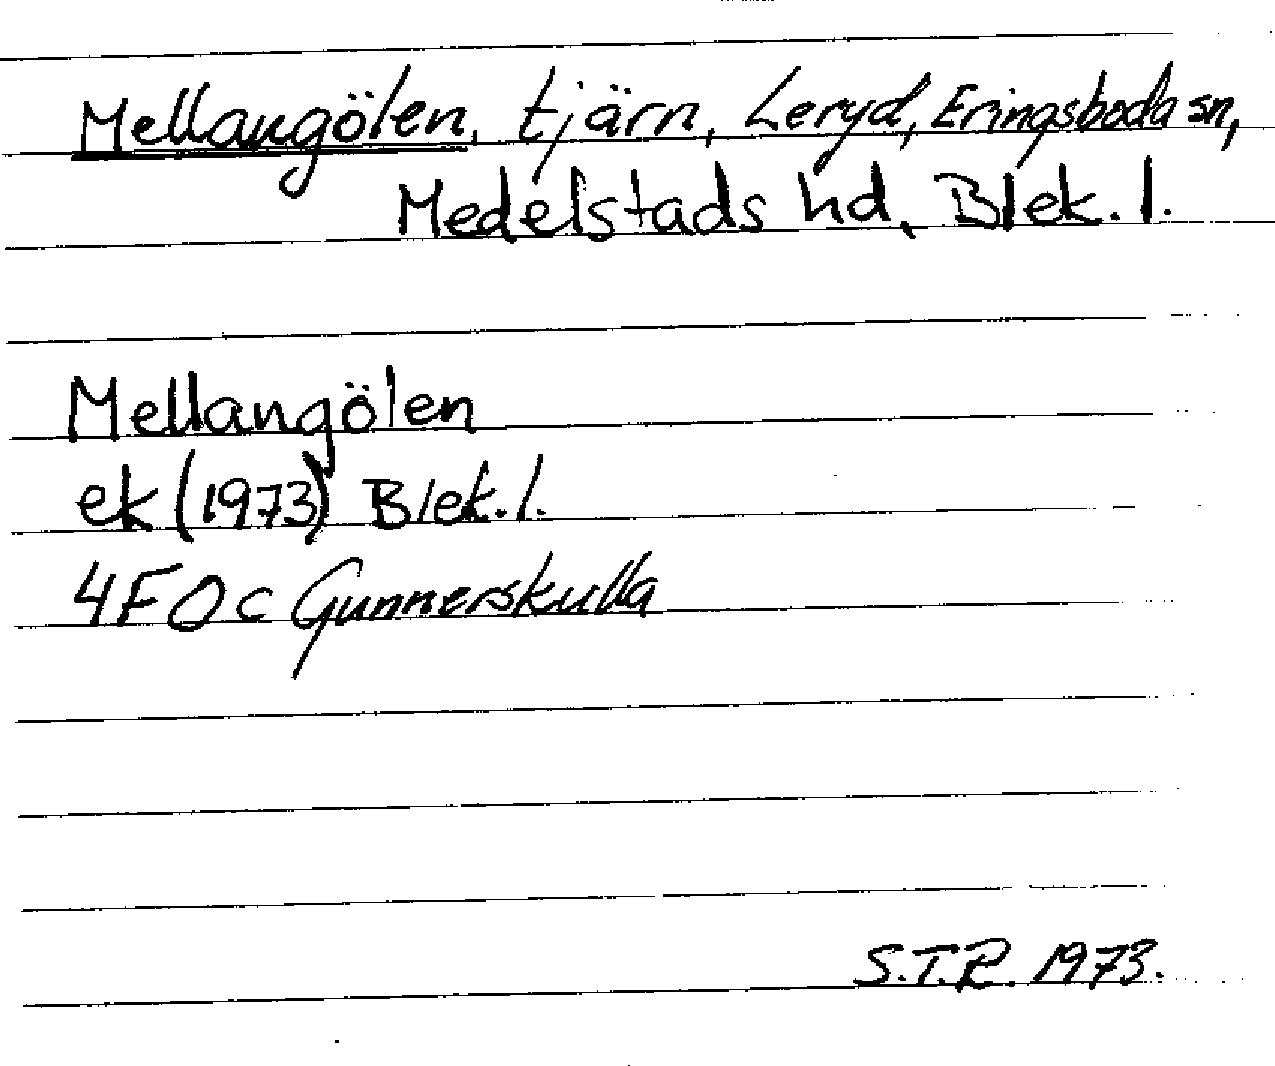 Mellangölen, tjärn, Leryd, Eringsboda sn,
Medelstads hd, Blek. l.
Mellangölen
ek (1973) Blek. l.
4F 0c Gunnerskulla
S.T.R. 1973.